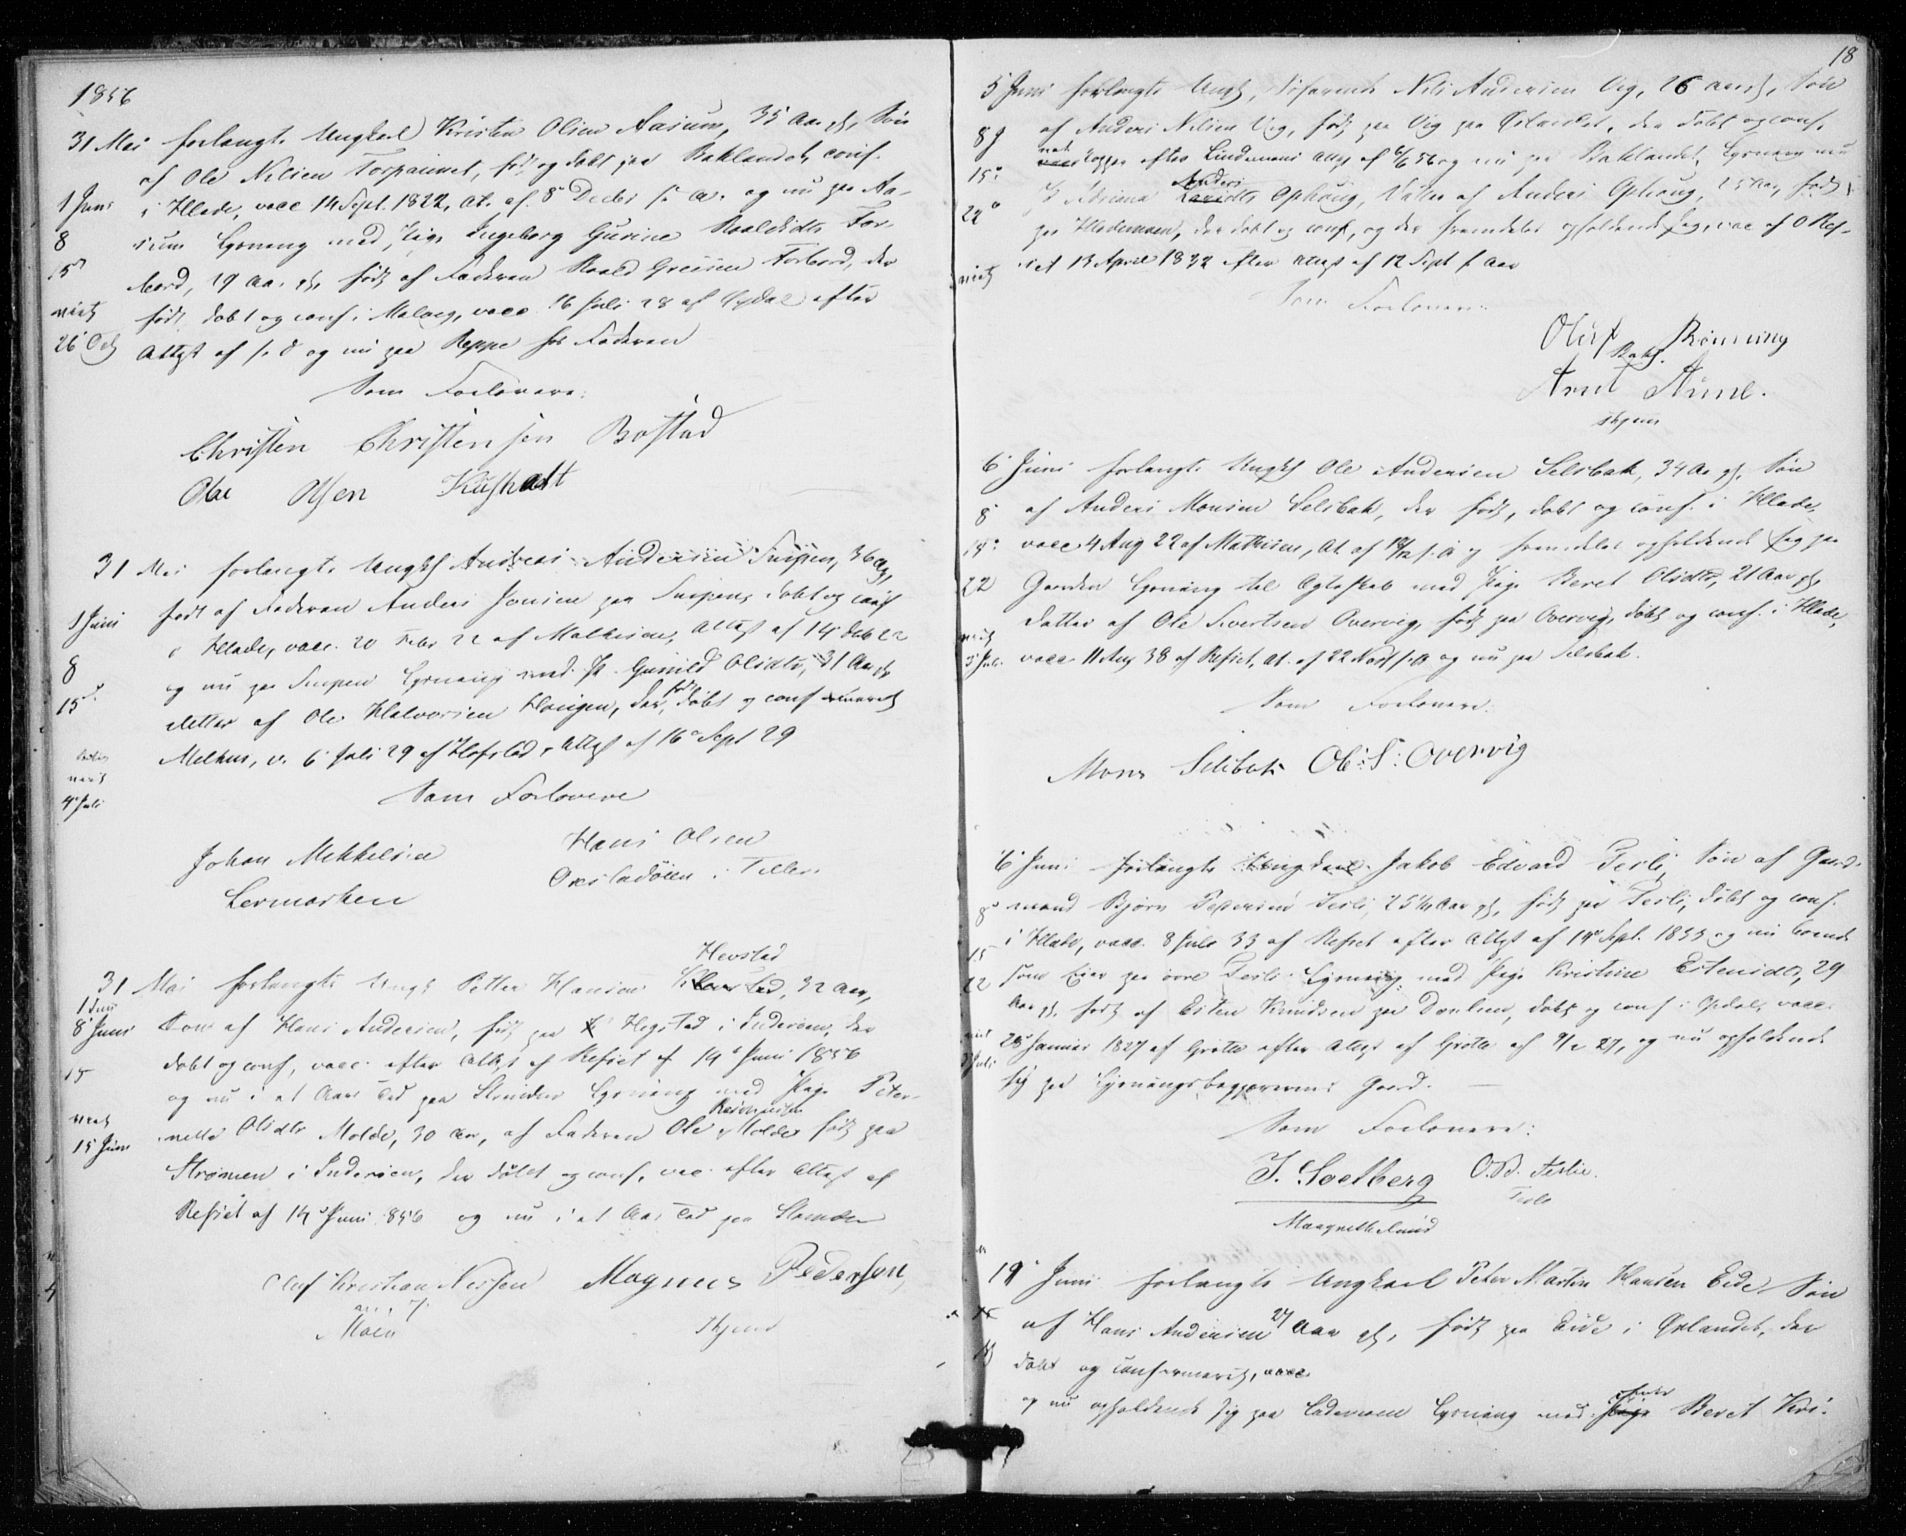 1856
31 Mai forlangte Ungkarl Kristen Olsen Aasum, 35 Aar gl, Søn
af Ole Nilsen Torpaunet, født og døbt paa Baklandet, conf.
1 Juni i Hlade, vacc 14 Sept. 1822, at. af 8 Decbr s. a. og nu paa Aa-
8 sum Lysning med Pige Ingeborg Gurine Roaldsdtr For-
15 bord, 29 Aar gl, født af Faderen Roald Forbord, der
viet født, døbt og conf. i Malvig, vacc 16 Juli 28 af efter
26 Oct Attest af s. d og nu paa Reppe hos Faderen
Som Forlovere:
Christen Christensen Bostad
Ole Olsen
31 Mai forlangte Ungkl Andreas Andersen Sneipen, 36 Aar,
1 Juni født af Faderen Anders Jonsen paa Sneipen, døbt og conf
i Hlade, vacc. 20 Febr 22 af Mathesen, Attest af 14 Feb 22
8 og nu paa Sneipen Lysning med P. Gunild Olsdtr, 31 Aar gl
15 Datter af Ole Halvorsen Haugen, der født døbt og conf
Melhus, v. 6 Juli 29 af Hofstad, Attest af 16 Sept 29
viet
4 Juli
Som Forlovere
Johan Mekkelsen Hans Olsen
Lermarken i Tiller
Hevstad
31 Mai forlangte Ungk Petter Hansen 32 Aar,
1 Juni
8 Juni Søn af Hans Andersen, født paa Hegstad i Inderøen, der
døbt og conf, vacc. efter Attest af Refset af 14 Juni 1856
15 og nu i et Aars Tid paa Strinden Lysning med Pige Peter-
viet nelle Olsdtr Molde, 30 Aar, af Faderen Ole Molde født paa
15 Juni Strømen i Inderøen, der døbt og conf, vac. efter Attest af
Refset af 14 Juni 856 og nu i et Aars Tid paa Strinden
Oluf Kristian Nessen Magnus Pedersen,
Moen
18
5 Juni forlangte Ungk, Nils Andersen Vig, 26 Aar gl, Søn
8 af Anders Nilsen Vig, født paa Vig paa Ørlandet, der døbt og conf.
15 nat Kopper efter Lindemans Attest af 6/6 56 og nu paa Baklandet, Lysning med
Anders
22 P Adriana dtr Ophoug, Datter af Anders Ophoug, 25 Aar, født
paa Hlademoen, der døbt og conf, og der fremdeles opholdende sig, vac af O Ref-
viet set 13 April 1832 efter Attest af 12 Sept s Aar
Som Forlovere:
Oluf Rønning
Bakl.
Arnt Aune.
6 Juni forlangte Ungkl Ole Andersen Selsbak, 34 Aar gl, Søn
8 af Anders Monsen Selsbak, der født, døbt og conf. i Hlade,
15 vacc 4 Aug 22 af Mathesen, At. af 18/12 s. A og fremdeles opholdende sig paa
22 Gaarden Lysning til Ægteskab med Pige Beret Olsdtr, 21 Aar gl,
Datter af Ole Sivertsen Overvig, født paa Overvig, døbt og conf. i Hlade,
viet
5 Juli vacc. 11 Aug 38 af Refset, At. af 22 Novbr s. A og nu paa Selsbak.
Som Forlovere:
Mons Selsbak Ole: S: Overvig
6 Juni forlangte Ungkarl Jakob Edvard Tesli, Søn af Gaard-
8 mand Bjørn Tesli, 25 Aar gl, født paa Tesli, døbt og conf.
15 i Hlade, vacc. 8 Juli 33 af Refset efter Attest af 14 Sept. 1833 og nu boende
22 som Eier paa øvre Tesli Lysning med Pige Kristine Estensdtr, 29
Aar gl. født af Esten Knudsen paa døbt og conf i Opdal, vacc.
viet 28 Januar 1827 af Grøtte efter Attest af Grøtte af 9/2 27, og nu opholdende
Juli sig paa Lysningsbegjærerens Gaard.
Som Forlovere:
J. Soelberg O.B. Teslie.
19 Juni forlangte Ungkarl Peter Martin Hansen Eide, Søn
af Hans Andersen 27 Aar gl, født paa Eide i Ørlandet, der
døbt og confermeret, vacc
og nu opholdende sig paa Lademoen Lysning med Enke Pige Beret Kri-